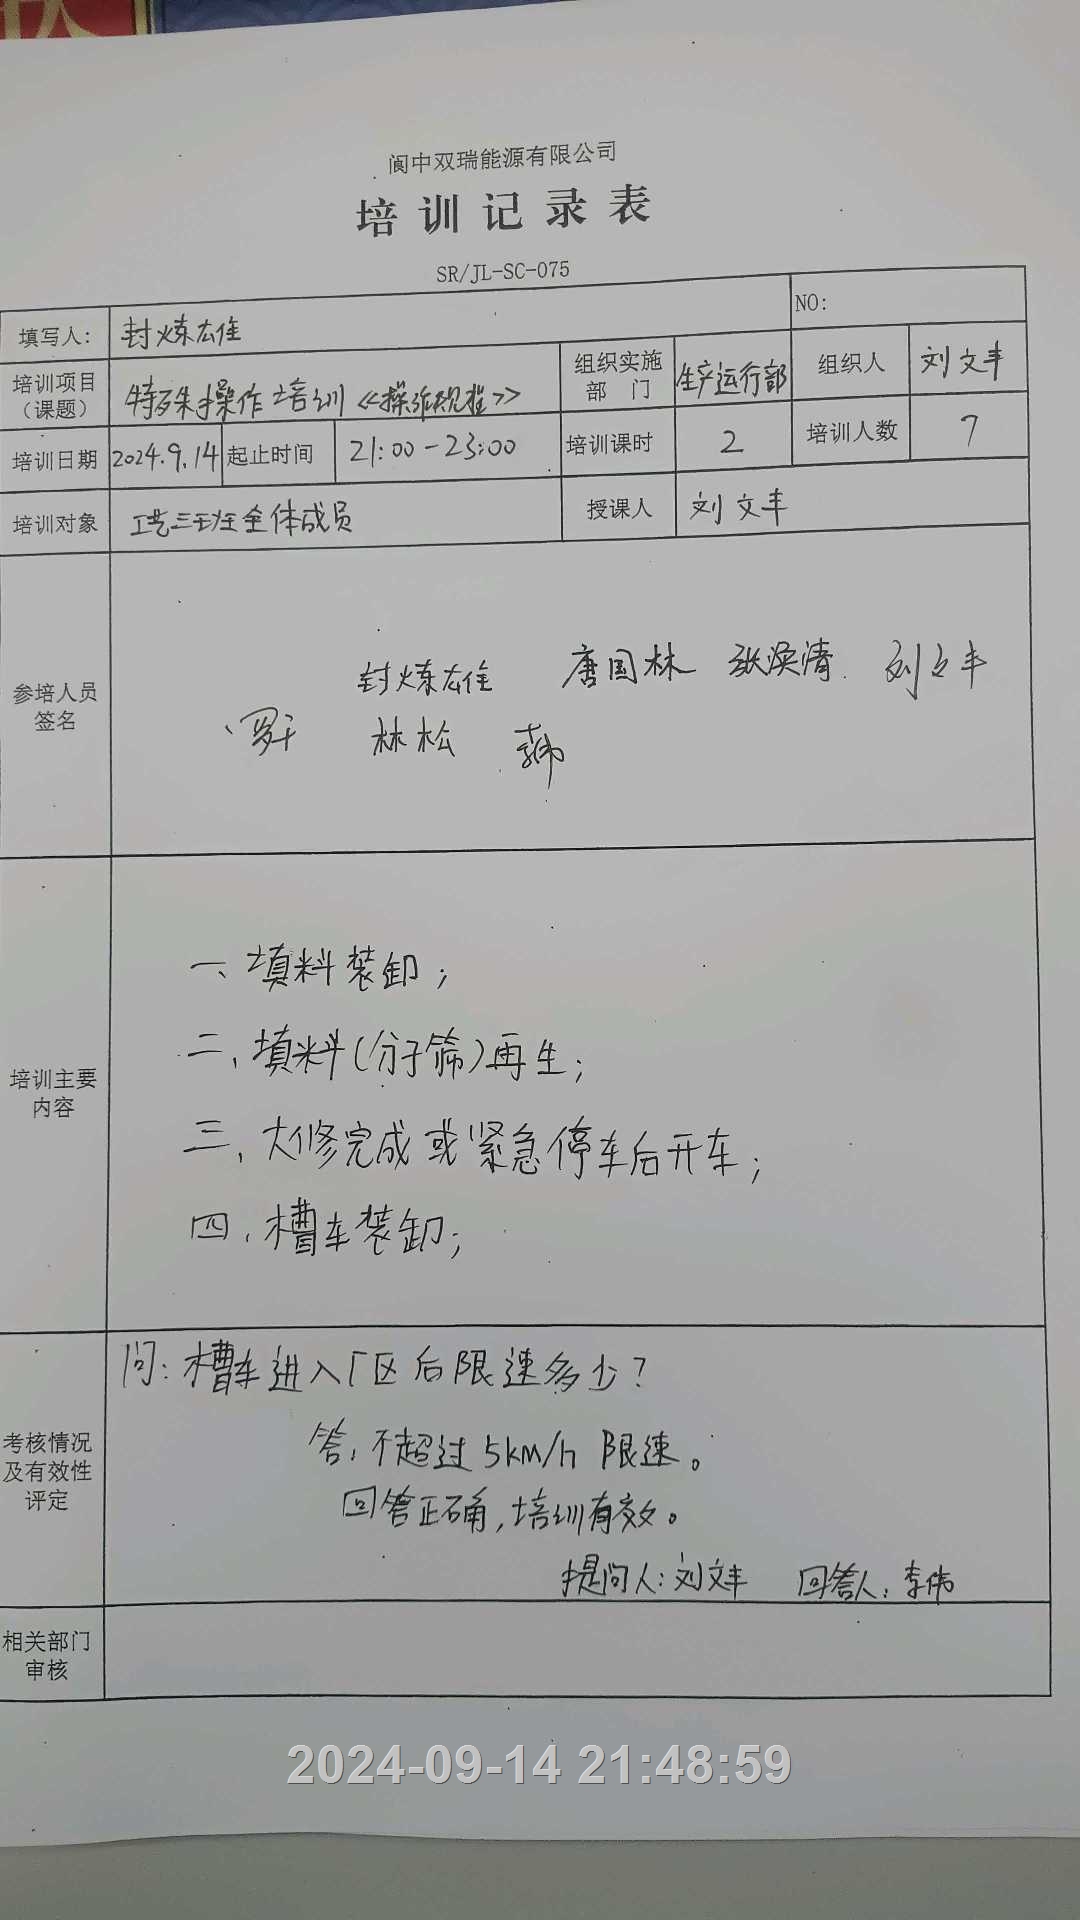 阆中双瑞能源有限公司
培训记录表
SR/JL-SC-075
填写人: 封炼雄 NO:
培训项目（课题） 特殊操作培训《操作规程》 组织实施部门 生产运行部 组织人 刘文丰
培训日期 2024.9.14 起止时间 21:00-23:00 培训课时 2 培训人数 7
培训对象 工艺三班全体成员 授课人 刘文丰
参培人员签名
封炼雄 唐国林 张涣清 刘文丰
罗于 林松 李伟
培训主要内容
一、填料装卸；
二、填料(分子筛)再生；
三、大修完成或紧急停车后开车；
四、槽车装卸；
考核情况及有效性评定
问:槽车进入厂区后限速多少?
答:不超过5km/h限速。
回答正确,培训有效。
提问人:刘文丰 回答人:李伟
相关部门审核
2024-09-14 21:48:59